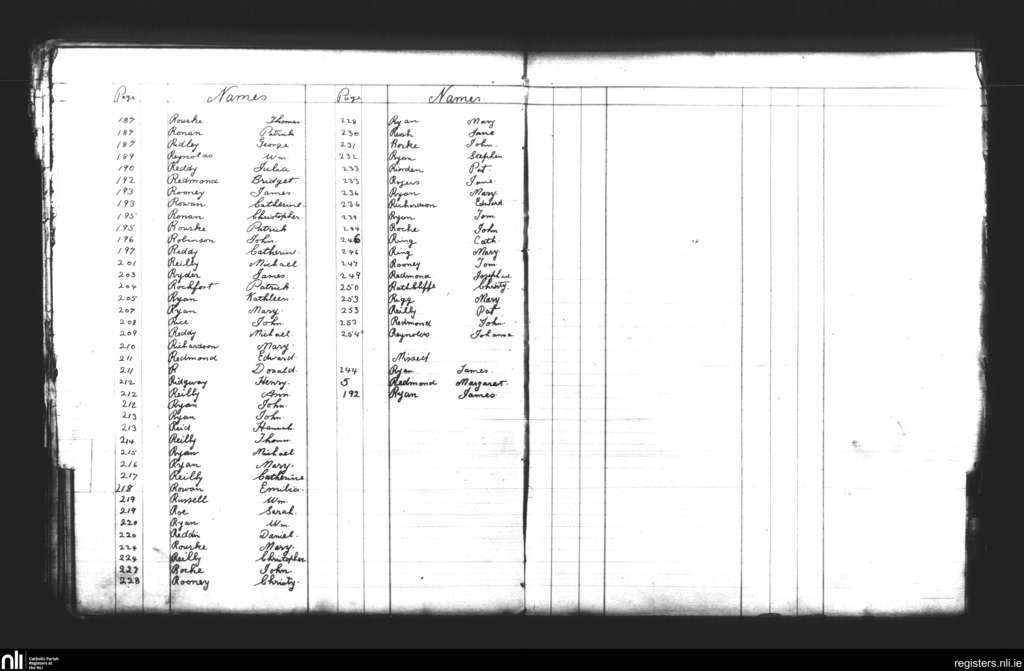 Page Names
187 Rourke Thomas
187 Ronan Patrick
187 Ridley George
189 Reynolds Wm
190 Reddy Julia
192 Redmond Bridget
193 Rooney James
193 Rowan Catherine
195 Ronan Christopher
195 Rourke Patrick
196 Robinson John
197 Reddy Catherine
201 Reilly Michael
203 Ryder James
204 Rochfort Patrick
205 Ryan Kathleen
207 Ryan Mary
208 Rice John
209 Reddy Michael
210 Richardson Mary
211 Redmond Edward
211 R Donald
212 Ridgway Henry
212 Reilly Ann
212 Ryan John
213 Ryan John
213 Reid Hannah
214 Reilly Thomas
215 Ryan Michael
216 Ryan Mary
217 Reilly Catherine
218 Rowan Emilia
219 Russell Wm
219 Roe Sarah
220 Ryan Wm
220 Reddin Daniel
224 Rourke Mary
224 Reilly Christopher
227 Roche John
228 Rooney Christy
Page Names
228 Ryan Mary
230 Rush Jane
231 Rorke John
232 Ryan Stephen
233 Riordan Pat
233 Rogers Jane
236 Ryan Mary
236 Richardson Edward
239 Ryan Tom
244 Roche John
246 Ring Cath
246 Ring Mary
247 Rooney Tom
249 Redmond Josephine
250 Rathcliffe Christy
253 Rigg Mary
253 Reilly Pat
253 Redmond John
254 Reynolds Johanna
Missed
244 Ryan James
5 Redmond Margaret
192 Ryan James
nli Catholic Parish
Registers at
the NLI
registers.nli.ie